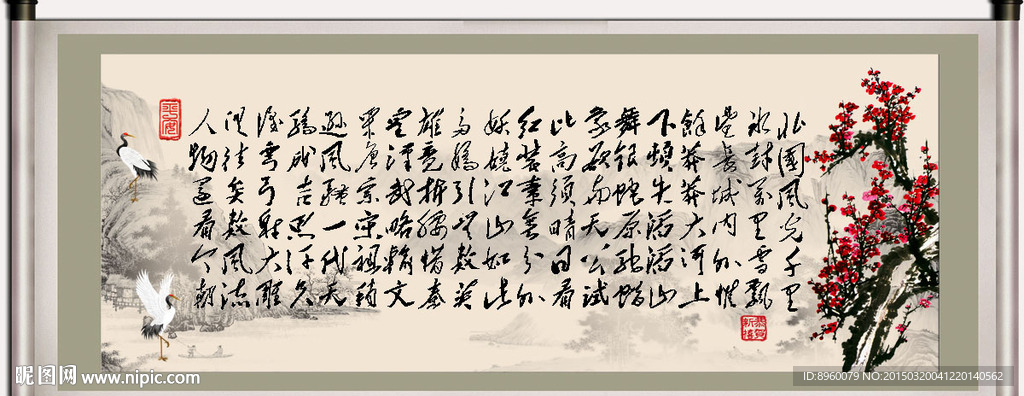 北國風光千里
冰封萬里雪飄
望長城内外惟
餘莽莽大河上
下頓失滔滔山
舞銀蛇原馳蠟
象欲与天公試
比高須晴日看
紅裝素裹分外
妖嬈江山如此
多嬌引無數英
雄競折腰惜秦
皇漢武略輸文
采唐宗宋祖稍
遜風騷一代天
驕成吉思汗只
識彎弓射大雕
俱往矣數風流
人物還看今朝
昵图网 www.nipic.com
ID:8960079 NO:20150320041220140562